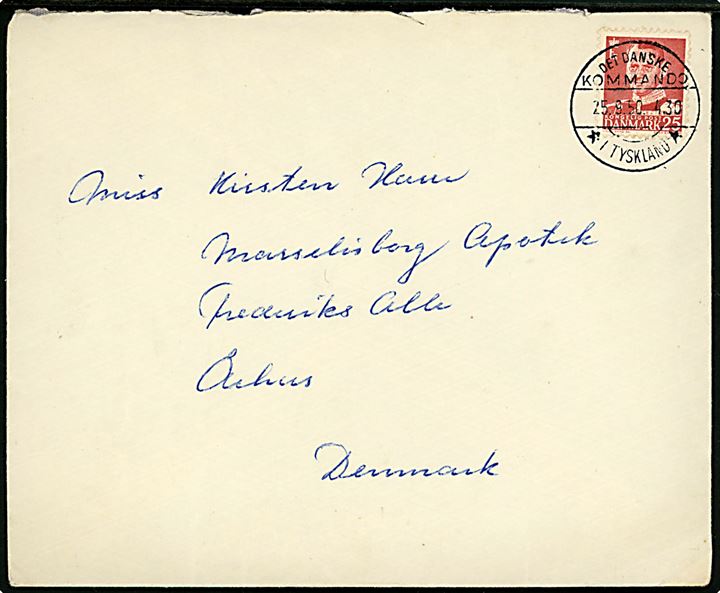 DET DANSKE
KOMMANDO
25.8.50. 4.30
I TYSKLAND
DANMARK 25
Miss Kirsten
Marselisborg Apotek
Frederiks Alle
Århus
Denmark